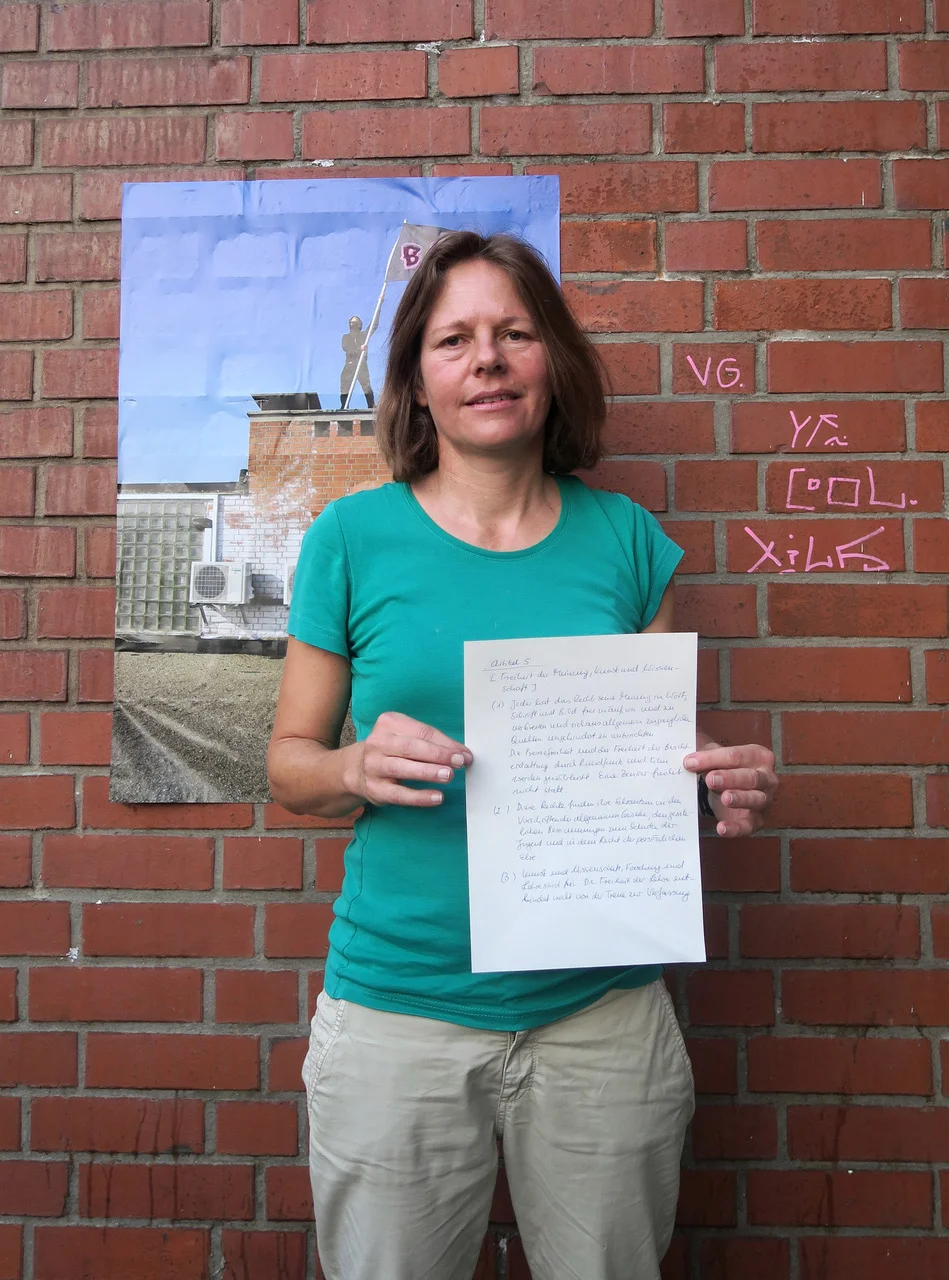 B
VG.
Artikel 5
[ Freiheit der Meinung, Kunst und Wissen-
schaft ]
(1) Jeder hat das Recht seine Meinung in Wort,
Schrift und Bild frei zu äußern und zu
verbreiten und sich aus allgemein zugänglichen
Quellen ungehindert zu unterrichten
Die Pressefreiheit und der Freiheit der Bericht
erstattung durch Rundfunk und Film
werden gewährleistet. Eine Zensur findet
nicht statt
(2) Diese Rechte finden ihre Schranken in den
Vorschriften allgemeinen Gesetze, den gesetz
lichen Bestimmungen zum Schutze der
Jugend und in dem Recht der persönlichen
Ehre
(3) Kunst und Wissenschaft, Forschung und
Lehre sind frei. Die Freiheit der Lehre ent-
bindet nicht von der Treue zur Verfassung